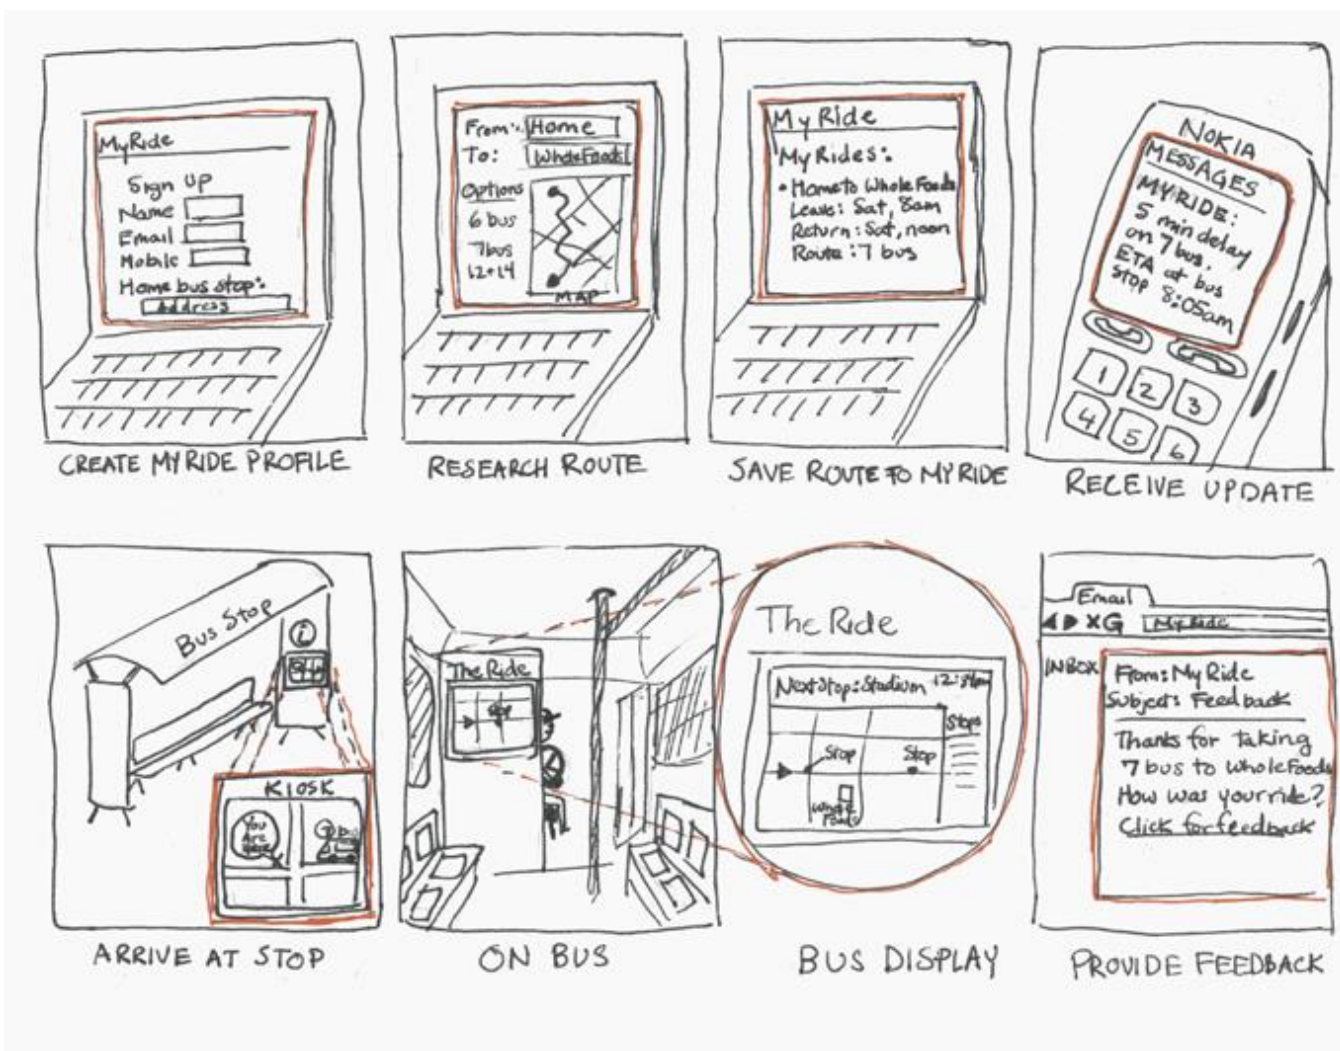 MyRide
Sign UP
Name
Email
Mobile
Home bus stop:
Address
CREATE MYRIDE PROFILE
From: Home
To: Whole Foods
Options
6 bus
7 bus
12→14
MAP
RESEARCH ROUTE
My Ride
My Rides:
• Home to Whole Foods
Leave: Sat, 8am
Return: Sat, noon
Route: 7 bus
SAVE ROUTE TO MYRIDE
NOKIA
MESSAGES
MYRIDE:
5 min delay
on 7 bus.
ETA at bus
stop 8:05am
1 2 3
4 5 6
RECEIVE UPDATE
Bus Stop
i
KIOSK
You
Are
Here
7 bus
ARRIVE AT STOP
The Ride
Stop
ON BUS
The Ride
Next Stop: Stadium
Stops
Stop
Stop
Whole
Foods
BUS DISPLAY
Email
MyRide
INBOX
From: My Ride
Subject: Feedback
Thanks for taking
7 bus to Whole Foods
How was your ride?
Click for feedback
PROVIDE FEEDBACK